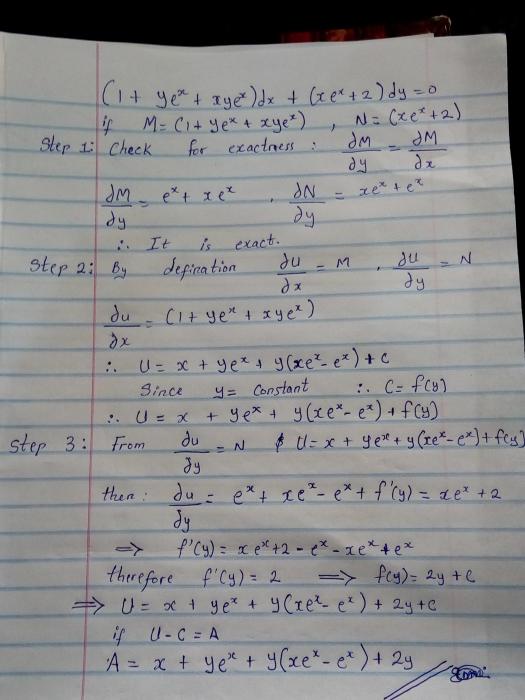 (1 + yeˣ + xyeˣ)dx + (xeˣ + 2)dy = 0
if M = (1 + yeˣ + xyeˣ) , N = (xeˣ + 2)
Step 1: Check for exactness : ∂M/∂y = ∂M/∂x
∂M/∂y = eˣ + xeˣ , ∂N/∂y = xeˣ + eˣ
∴ It is exact.
Step 2: By defination ∂u/∂x = M , ∂u/∂y = N
∂u/∂x = (1 + yeˣ + xyeˣ)
∴ U = x + yeˣ + y(xeˣ - eˣ) + c
Since y = constant ∴ C = f(y)
∴ U = x + yeˣ + y(xeˣ - eˣ) + f(y)
Step 3: From ∂u/∂y = N & U = x + yeˣ + y(xeˣ - eˣ) + f(y)
then : ∂u/∂y = eˣ + xeˣ - eˣ + f'(y) = xeˣ + 2
⇒ f'(y) = xeˣ + 2 - eˣ - xeˣ + eˣ
therefore f'(y) = 2 ⇒ f(y) = 2y + c
⇒ U = x + yeˣ + y(xeˣ - eˣ) + 2y + c
if U - C = A
A = x + yeˣ + y(xeˣ - eˣ) + 2y